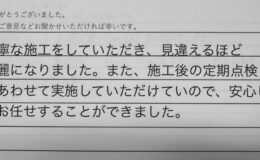 がとうございました。
ご意見などお聞かせいただければ幸いです。
寧な施工をしていただき、見違えるほど
麗になりました。また、施工後の定期点検
あわせて実施していただけていので、安心し
お任せすることができました。